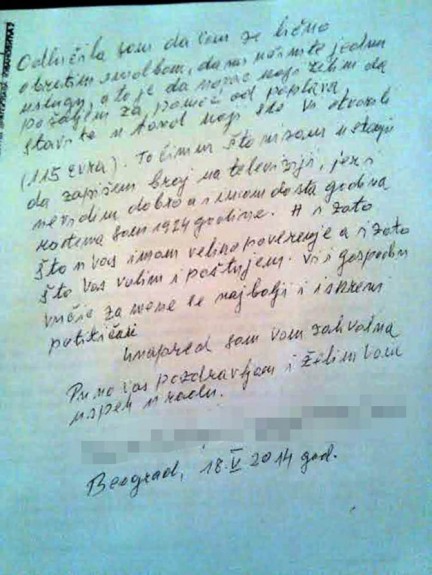 Odlučila sam da Vam se lično
obratim s molbom, da mi učinite jednu
uslugu, a to je da novac koji želim da
pošaljem za pomoć od poplava
stavite u fond koji ste Vi otvorili
(115 evra). To činim što nisam u stanju
da zapišem broj na televiziji, jer i
ne vidim dobro a i imam dosta godina
rođena sam 1924 godine. A i zato
što u vas imam veliko poverenje a i zato
što Vas volim i poštujem. Vi i gospodin
Vučić za mene ste najbolji i iskreni
političari
Unapred sam Vam zahvalna
Puno vas pozdravljam i želim Vam
uspeh u radu.
Beograd, 18. V 2014 god.